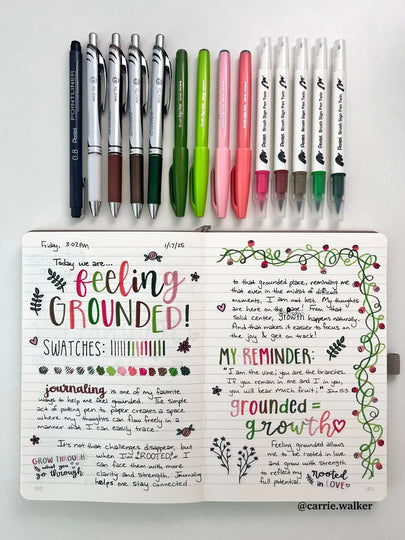 Pentel POINTLINER 0.8
Brush Sign Pen Twin
Brush Sign Pen Twin
Brush Sign Pen Twin
Brush Sign Pen Twin
Brush Sign Pen Twin
Friday, 3:02PM 1/17/25
Today we are...
feeling
GROUNDED!
SWATCHES:
journaling is one of my favorite
ways to help me feel grounded. The simple
act of putting pen to paper creates a space
where my thoughts can flow freely in a
manner that I can easily trace.
It's not that challenges disappear, but
when I'm "ROOTED," I
can face them with more
clarity and strength. Journaling
helps me stay connected
GROW THROUGH
what you
go through
182
to that grounded place, reminding me
that even in the midst of difficult
moments, I am not lost. My thoughts
are here on the page! From that
solid center, growth happens naturally.
And that makes it easier to focus on
the joy & get on track!
MY REMINDER:
"I am the vine; you are the branches.
If you remain in me and I in you,
you will bear much fruit;" Jn 15:5
grounded =
growth
Feeling grounded allows
me to be rooted in love
and grow with strength
to reflect my
full potential.
rooted
in LOVE
183
@carrie.walker